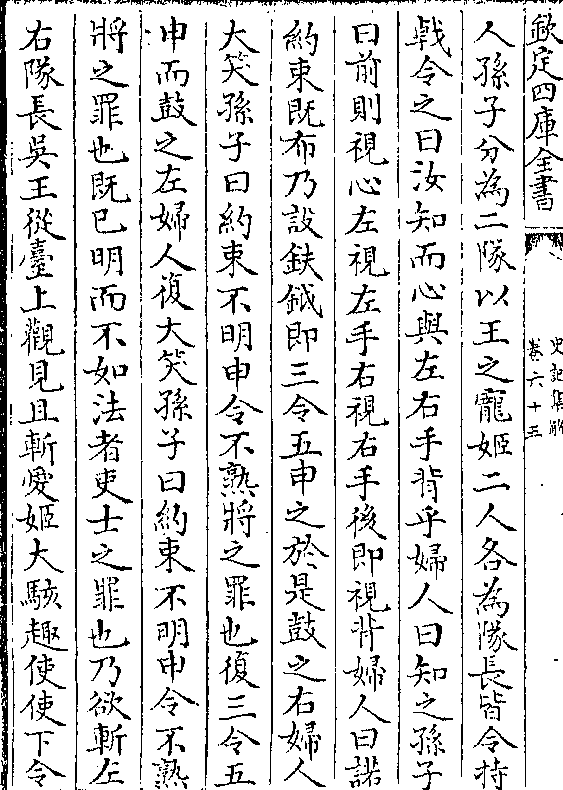 欽定四庫全書
史記集解
卷六十五
人孫子分為二隊以王之寵姬二人各為隊長皆令持
戟令之曰汝知而心與左右手背乎婦人曰知之孫子
曰前則視心左視左手右視右手後即視背婦人曰諾
約束既布乃設鈇鉞即三令五申之於是鼓之右婦人
大笑孫子曰約束不明申令不熟將之罪也復三令五
申而鼓之左婦人復大笑孫子曰約束不明申令不熟
將之罪也既已明而不如法者吏士之罪也乃欲斬左
右隊長吳王從臺上觀見且斬愛姬大駭趣使使下令